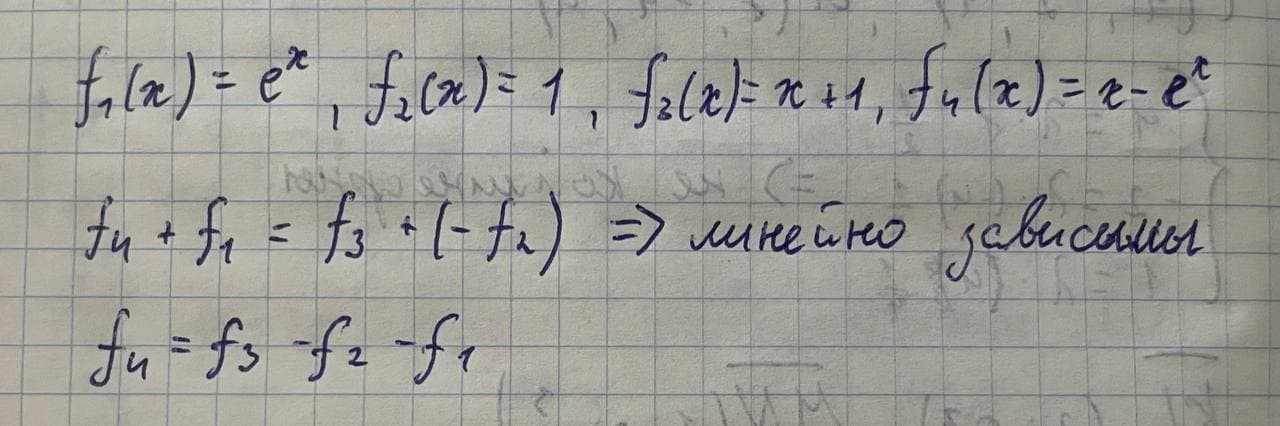 f₁(x) = eˣ, f₂(x) = 1, f₃(x) = x + 1, f₄(x) = x - eˣ
f₄ + f₁ = f₃ + (-f₂) => линейно зависимы
f₄ = f₃ - f₂ - f₁